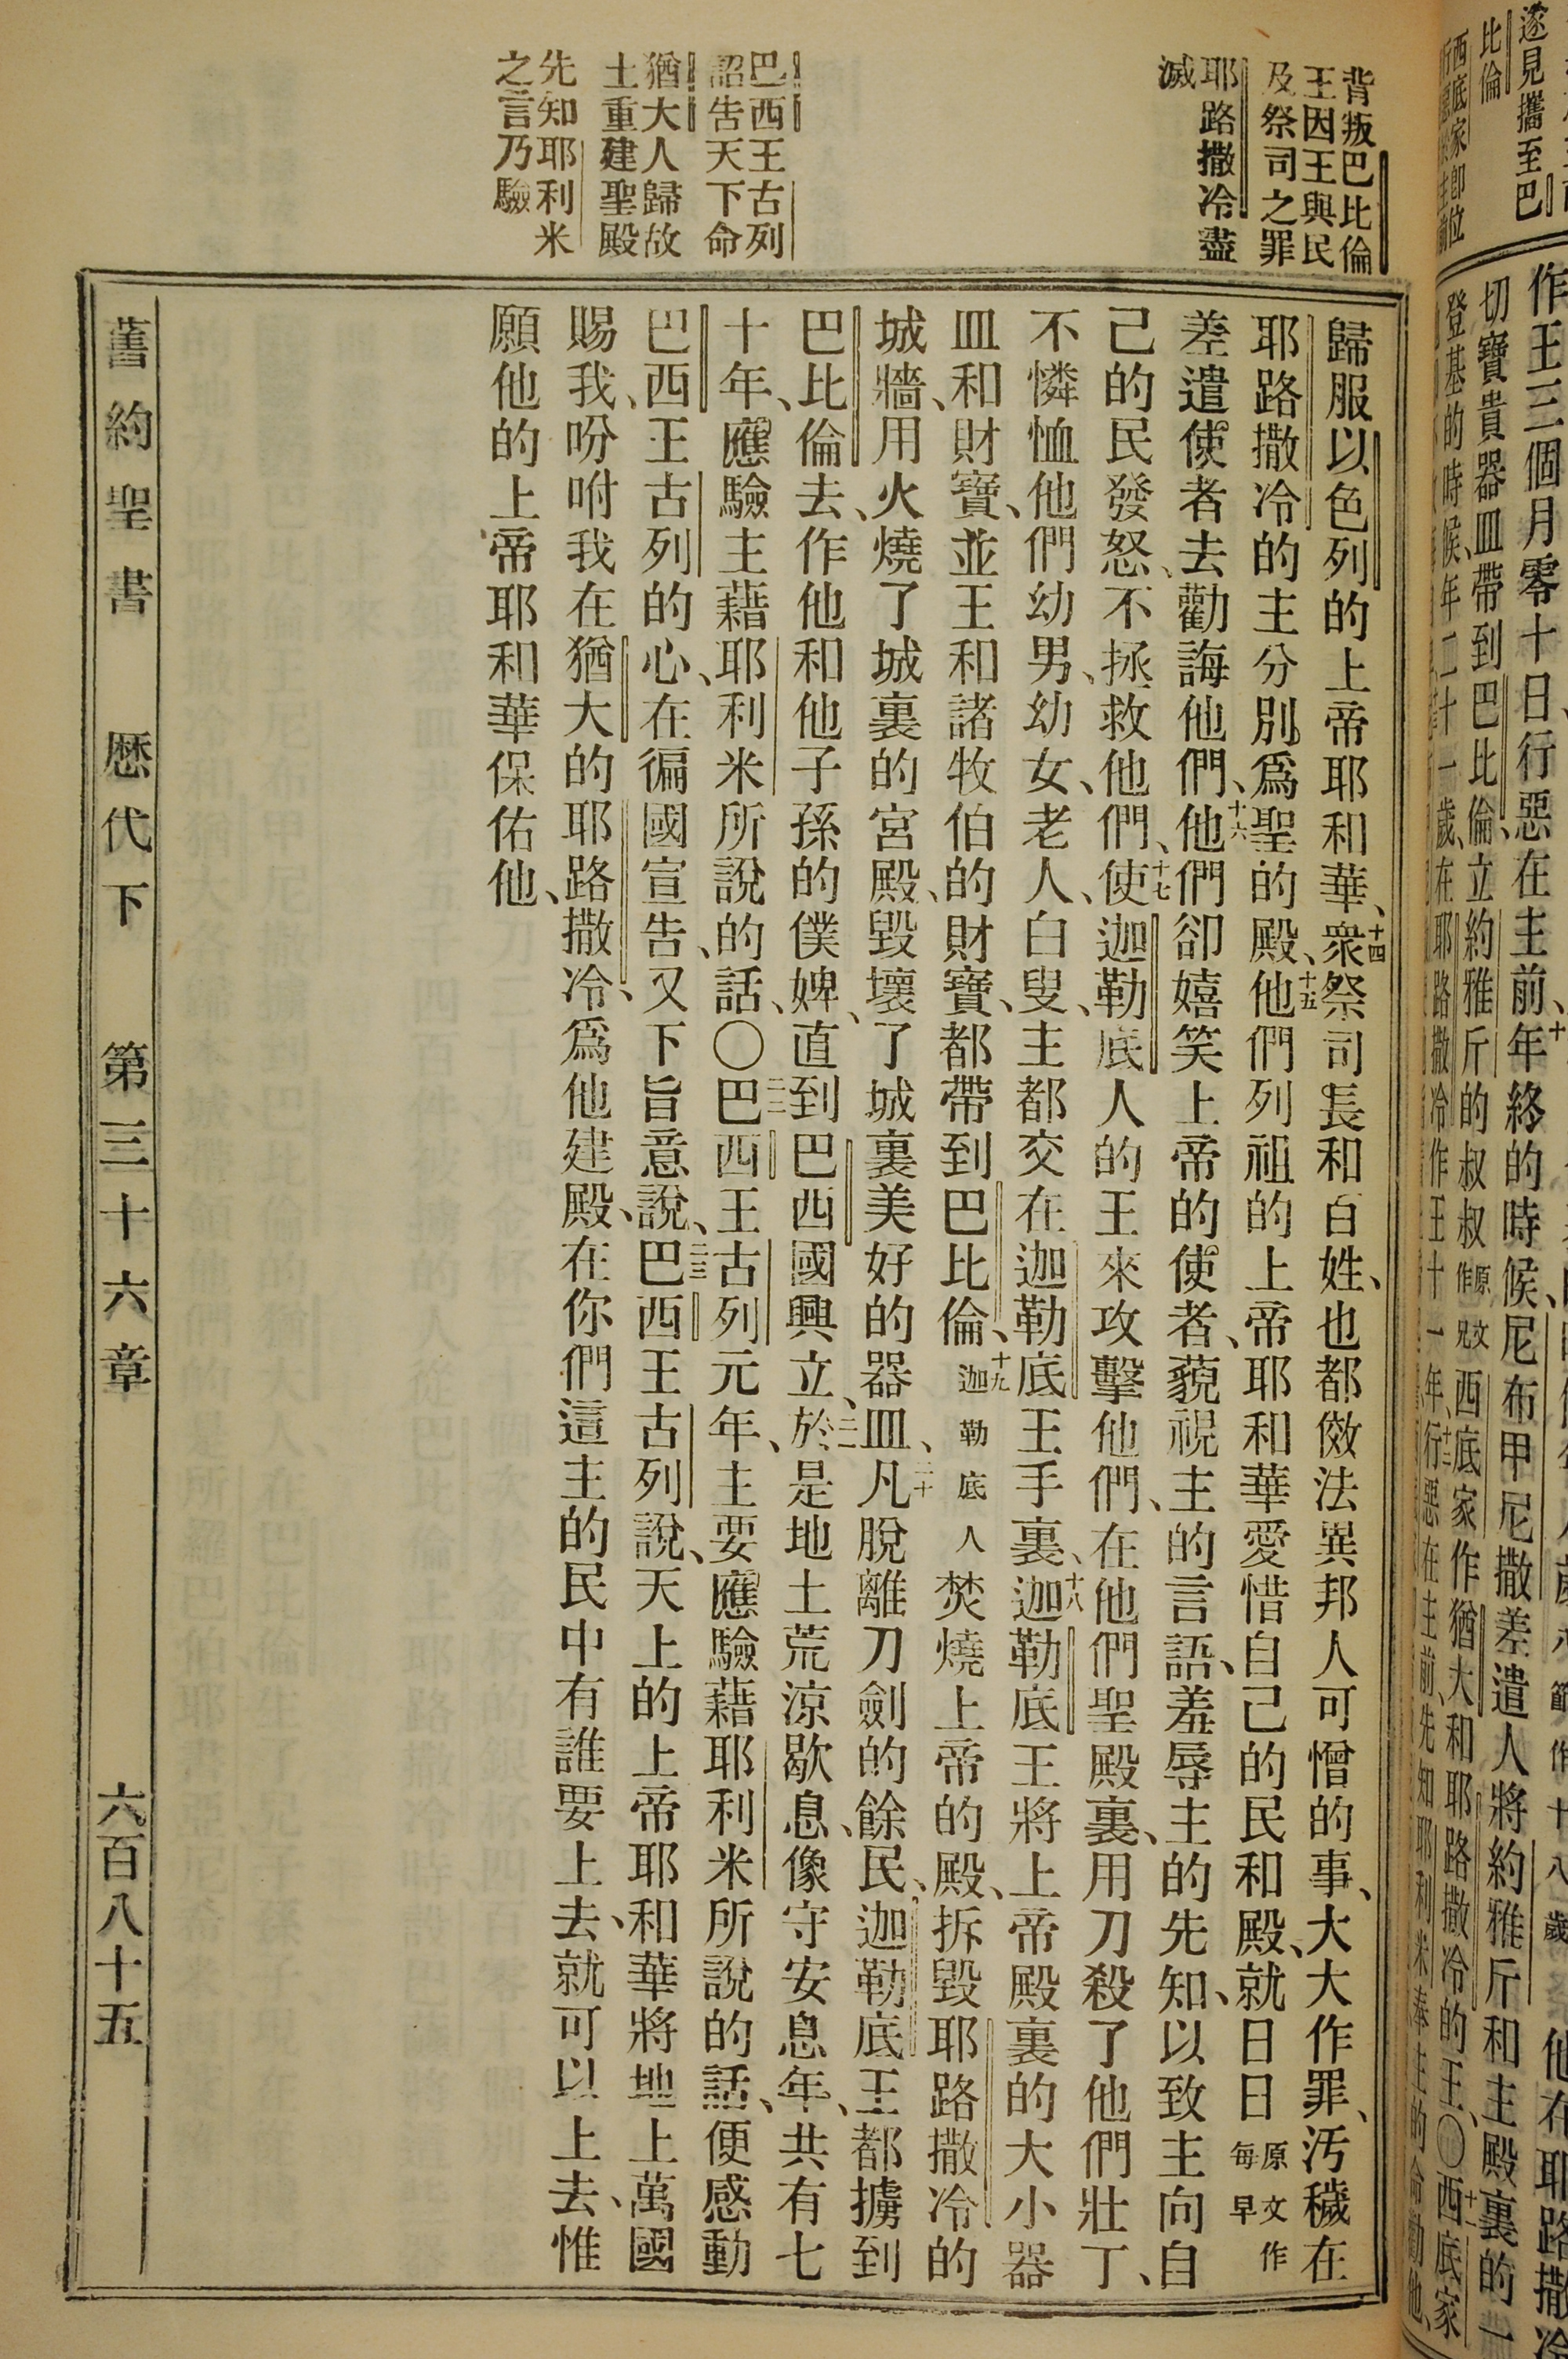 作王三個月零十日、行惡在主前、十年終的時候、尼布甲尼撒差遣人將約雅斤和主殿裏的一
切寶貴器皿帶到巴比倫、立約雅斤的叔叔原文作兄西底家作猶大和耶路撒冷的王、〇十一西底家
登基的時候、年二十一歲、在耶路撒冷作王十一年、十二行惡在主前、先知耶利米奉主的命勸他、
遂見攜至巴
比倫
西底家卽位
背叛巴比倫
王因王與民
及祭司之罪
耶路撒冷盡
滅
巴西王古列
詔告天下命
猶大人歸故
土重建聖殿
先知耶利米
之言乃驗
歸服以色列的上帝耶和華、十四衆祭司長和百姓、也都傚法異邦人可憎的事、大大作罪、汚穢在
耶路撒冷的主分別爲聖的殿、十五他們列祖的上帝耶和華愛惜自己的民和殿、就日日原文作每早
差遣使者去勸誨他們、十六他們卻嬉笑上帝的使者、藐視主的言語、羞辱主的先知、以致主向自
己的民發怒、不拯救他們、十七使迦勒底人的王來攻擊他們、在他們聖殿裏、用刀殺了他們壯丁、
不憐恤他們幼男、幼女、老人、白叟、主都交在迦勒底王手裏、十八迦勒底王將上帝殿裏的大小器
皿和財寶、並王和諸牧伯的財寶、都帶到巴比倫、十九迦勒底人焚燒上帝的殿、拆毀耶路撒冷的
城牆、用火燒了城裏的宮殿、毀壞了城裏美好的器皿、二十凡脫離刀劍的餘民、迦勒底王都擄到
巴比倫去、作他和他子孫的僕婢、直到巴西國興立、二一於是地土荒涼歇息、像守安息年、共有七
十年、應驗主藉耶利米所說的話、〇二二巴西王古列元年、主要應驗藉耶利米所說的話、便感動
巴西王古列的心、在徧國宣告、又下旨意說、二三巴西王古列說、天上的上帝耶和華將地上萬國
賜我、吩咐我在猶大的耶路撒冷、爲他建殿、在你們這主的民中有誰要上去、就可以上去、惟
願他的上帝耶和華保佑他、
舊約聖書　歷代下　第三十六章　六百八十五